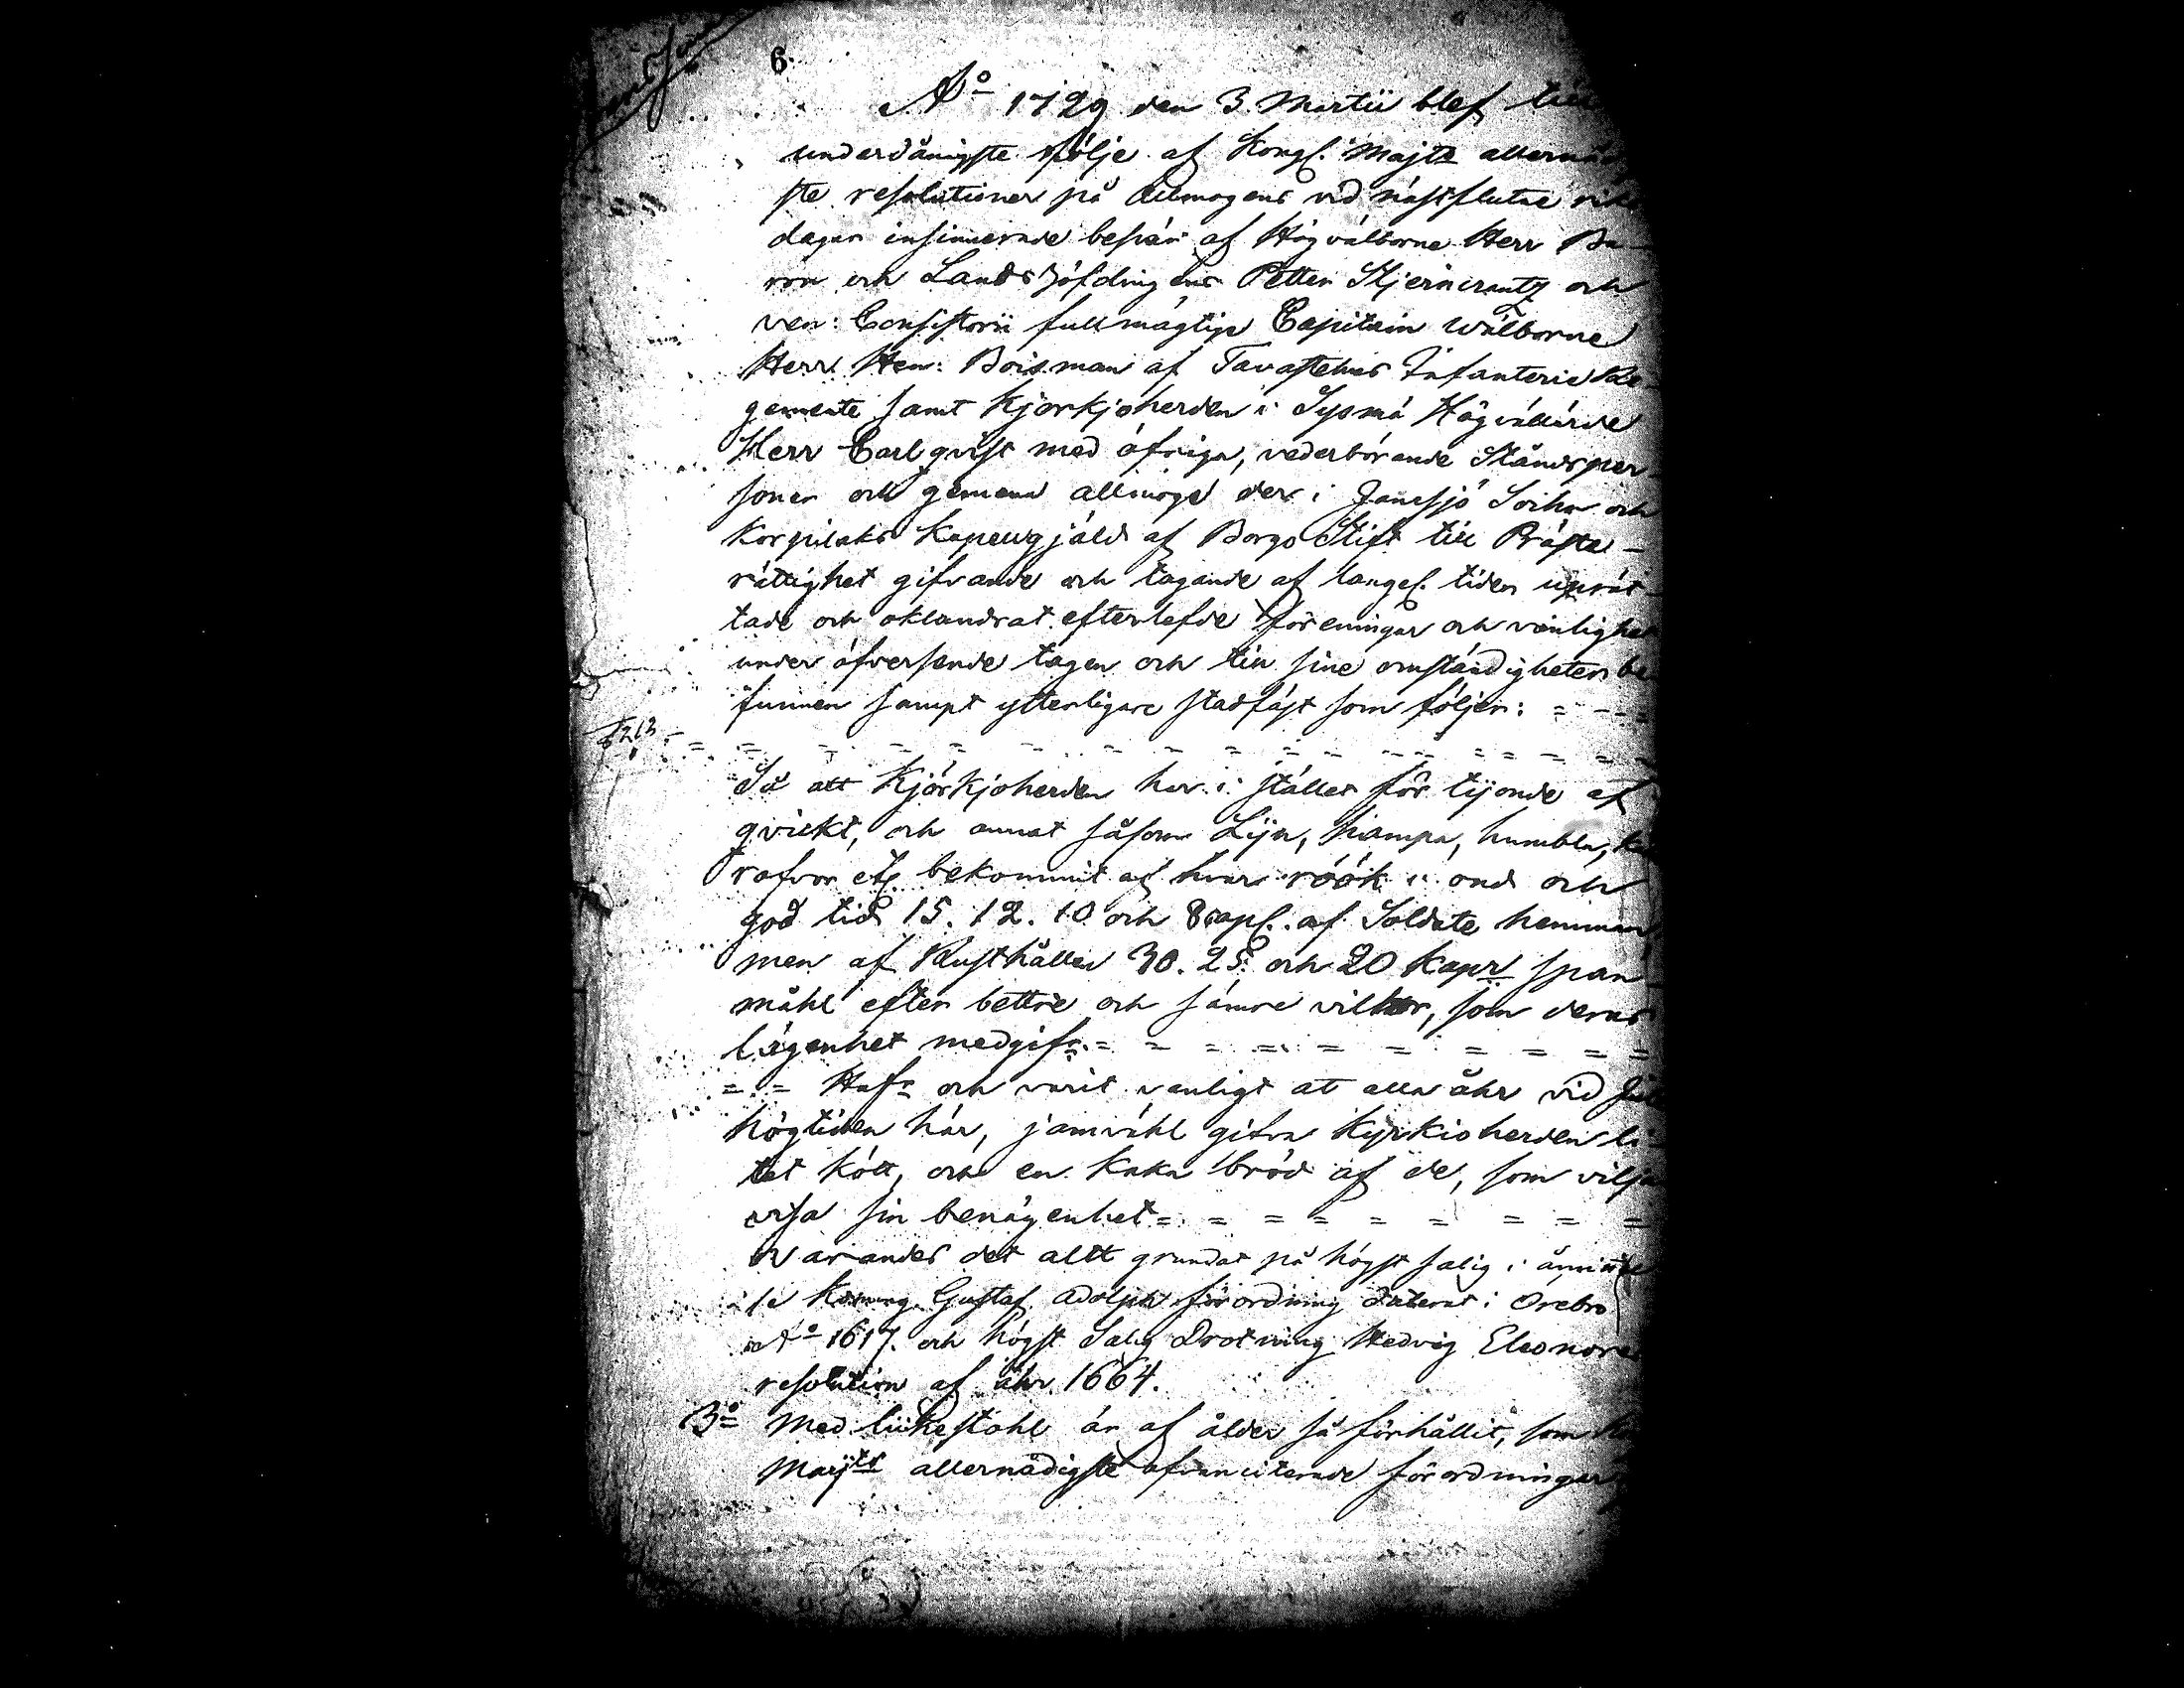 6.
A:o 1729 den 3. Martii blef till
underdånigste följe af Kongl. Majts allernåd
ste resolutioner på Allmogens vid nästslutne riks
dagar insinuerade besvär af Högvälborne Herr Ba-
ron och Landshöfdingens Petter Stjerncrantz och
ven: Consistorii fullmägtige Capitain Wälborne
Herr Hen: Boisman af Tavastehus Infanterie Re-
gemente samt Kjörkjoherden i Sysmä Högvällärde
Herr Carlqvist med öfriga, vederbörande Ståndsper-
soner och gemena allmoge der i Jamsjö Soikn och
Korpilaks Kapellgjäld af Borgo Stift till Präste-
rättighet gifvande och tagande af langl. tider uprät-
tade och oklandrat efterlefde föreningar och vänlighet
under öfverseende tagen och till sine omständigheter be-
funnen sampt ytterligare stadfäst som följer: = - - =
= = = = = = = = = = = = = = =
Så att Kjörkjoherden har i stället för tijonde af
qvickt, och annat såsom Lijn, hampa, humbla,
rofvor etc. bekommit af hvar röök i ond och
god tid 15. 12. 10 och 8 capl. af Soldate hemman
men af Rusthållen 30. 25. och 20 Kapr span-
måhl efter bettre och sämre vilkor, som deras
lägenhet medgifr. = = = = = = = = =
= = Hafr och varit vanligt at alla åhr vid Jule
högtiden här, jamvähl gifva Kyrkioherden li-
tet kött, och en Kaka bröd af de, som vilja
visa sin benägenhet = = = = = = = = =
Varandes det allt grundat på högst salig i åminnel
se Konung Gustaf Adolphs förordning daterat i Örebro
A:o 1617. och högst Salig Drotning Hedvig Eleonore
resolution af åhr 1664.
3:o Med likestohl är af ålder så förhållit, som
Maijts allernådigste ofvanciterade förordningar